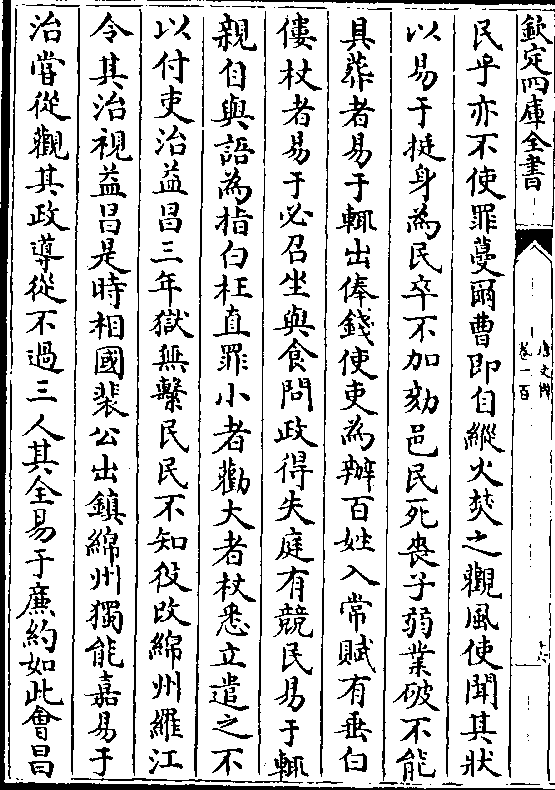 欽定四庫全書
唐文粹
卷一百
十六
民乎亦不使罪蔓爾曹即自縱火焚之觀風使聞其狀
以易于挺身為民卒不加劾邑民死喪子弱業破不能
具葬者易于輒出俸錢使吏為辦百姓入常賦有垂白
僂杖者易于必召坐與食問政得失庭有競民易于輒
親自與語為指白枉直罪小者勸大者杖悉立遣之不
以付吏治益昌三年獄無繫民民不知役改綿州羅江
令其治視益昌是時相國裴公出鎮綿州獨能嘉易于
治嘗從觀其政導從不過三人其全易于廉約如此會昌